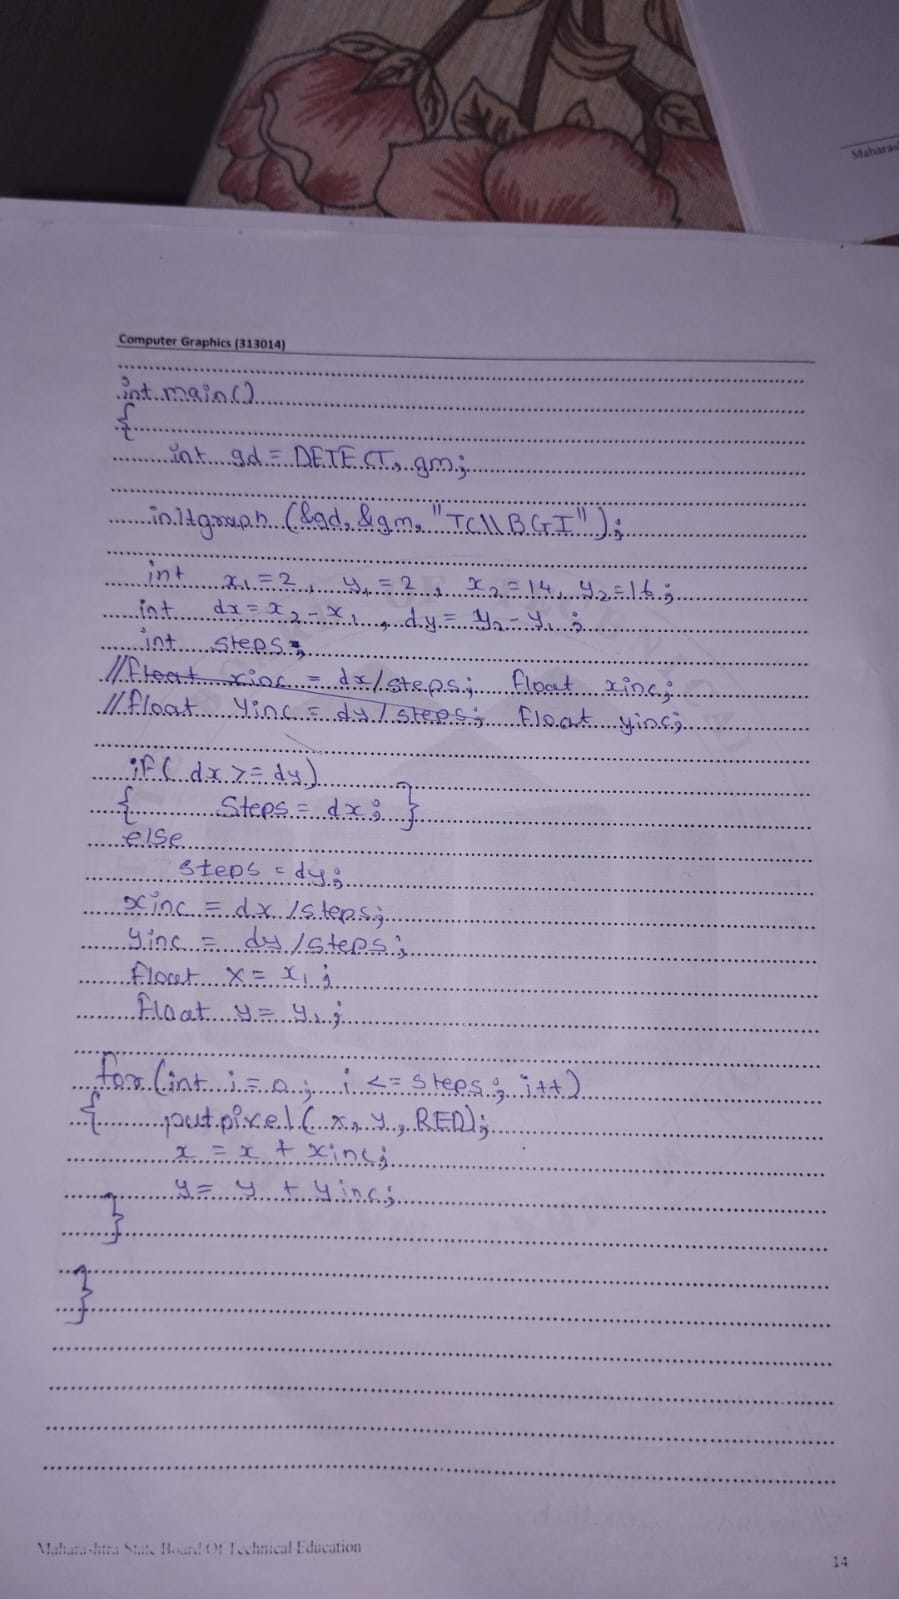 Maharas
Computer Graphics (313014)
int main()
{
int gd = DETECT, gm;
initgraph (&gd, &gm, "TC\\BGI");
int x1=2, y1=2, x2=14, y2=16;
int dx=x2-x1, dy=y2-y1;
int steps;
//float xinc = dx/steps; float xinc;
//float yinc = dy/steps; float yinc;
if( dx>=dy)
{ steps = dx; }
else
steps = dy;
xinc = dx/steps;
yinc = dy/steps;
float x = x1;
float y = y1;
for(int i=0; i<=steps; i++)
{ putpixel( x, y, RED);
x = x + xinc;
y = y + yinc;
}
}
Maharashtra State Board Of Technical Education
14